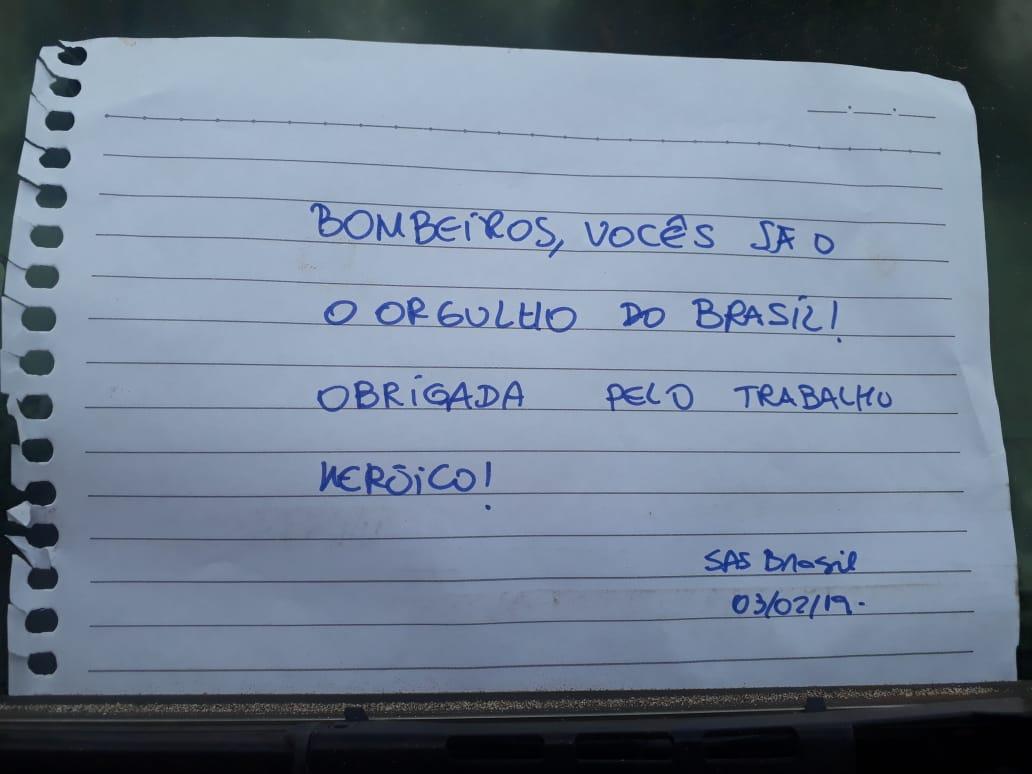 BOMBEIROS, VOCÊS SÃO
O ORGULHO DO BRASIL!
OBRIGADA PELO TRABALHO
HERÓICO!
SAS Brasil
03/02/19.